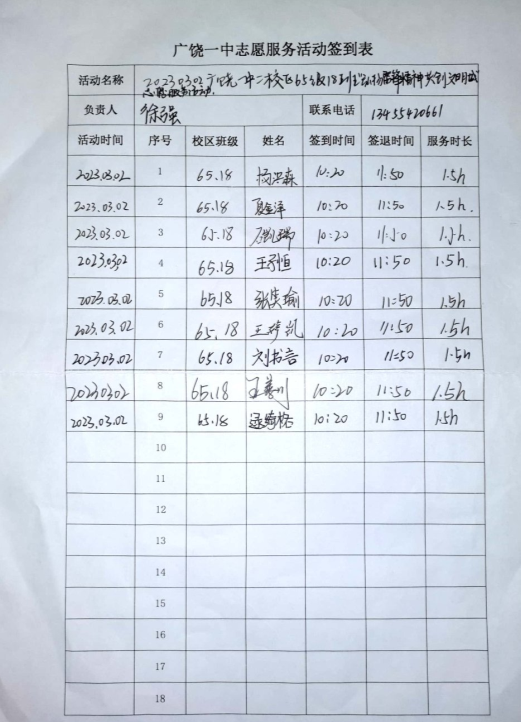 广饶一中志愿服务活动签到表
活动名称 20230302广饶一中二校区65级18班"弘扬雷锋精神共创文明城
志愿服务活动.
负责人 徐强 联系电话 13455420661
活动时间 序号 校区班级 姓名 签到时间 签退时间 服务时长
2023.03.02 1 65.18 杨洪森 10:20 11:50 1.5h
2023.03.02 2 65.18 10:20 11:50 1.5h.
2023.03.02 3 65.18 10:20 11:50 1.5h.
2023.0302 4 65.18 王引恒 10:20 11:50 1.5h.
2023.03.02 5 65.18 张 瑜 10:20 11:50 1.5h
2023.03.02 6 65.18 王梓凯 10:20 11:50 1.5h
20230302 7 65.18 刘书言 10:20 11:50 1.5h
20230302 8 65.18 10:20 11:50 1.5h
2023.03.02 9 65.18 10:20 11:50 1.5h
10
11
12
13
14
15
16
17
18